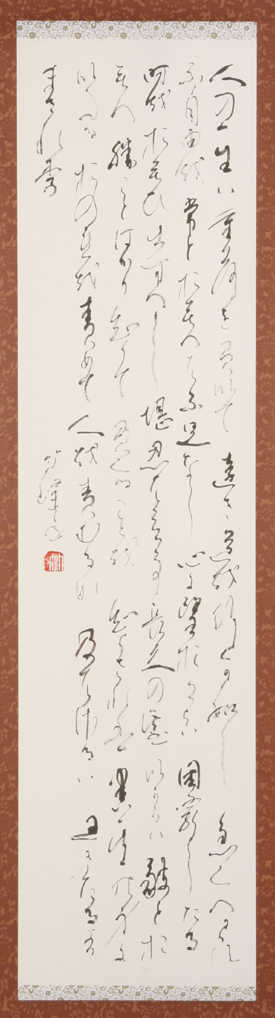 人の一生は重荷を負いて遠き道を行くが如し急ぐべからず
不自由を常とおもへば不足なし心に望おこらば困窮したる
時をおもひ出すべし堪忍は無事長久の基いかりは敵とお
もへ勝ことばかり知りてまくる事を知らざれば害其身に
いたるおのれを責めて人を責むるな及ばざるは過ぎたるより
まされり